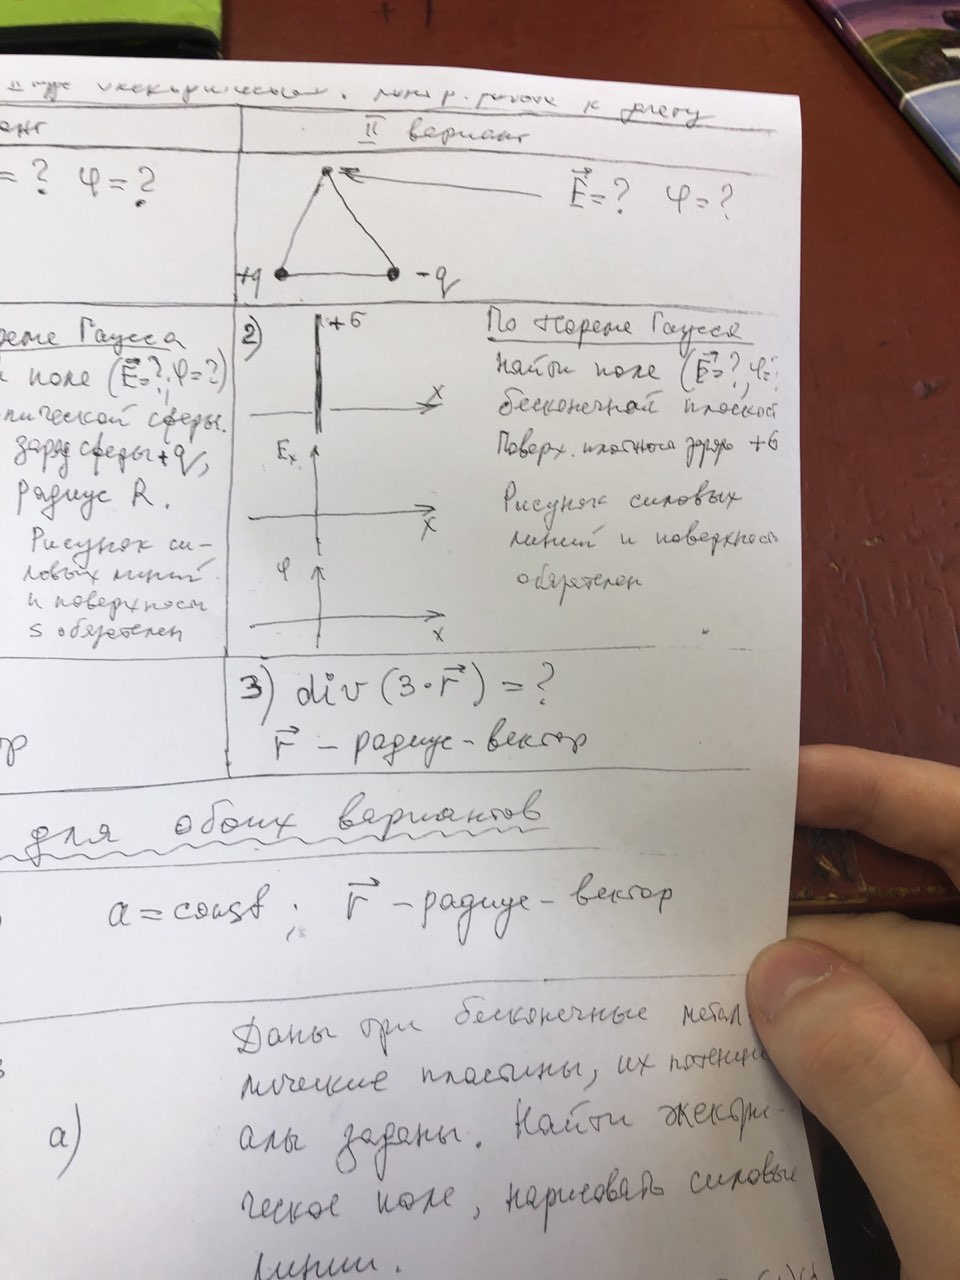 контр. работа к зачету
II вариант
= ? φ = ?
E⃗ = ? φ = ?
+q
-q
реме Гаусса
поле (E⃗=?; φ=?)
лической сферы.
заряд сферы +q,
радиус R.
Рисунок си-
ловых линий
и поверхности
S обязателен
2)
+б
x
Eₓ
x
φ
x
По теореме Гаусса
Найти поле (E⃗=?, φ=
бесконечной плоскос
Поверх. плотность заряда +б
Рисунок силовых
линий и поверхности
обязателен
3) div (3·r⃗) = ?
r⃗ – радиус-вектор
для обоих вариантов
a = const ; r⃗ – радиус-вектор
а)
Даны три бесконечные метал
лические пластины, их потенци
алы заданы. Найти электри-
ческое поле, нарисовать силовые
линии.